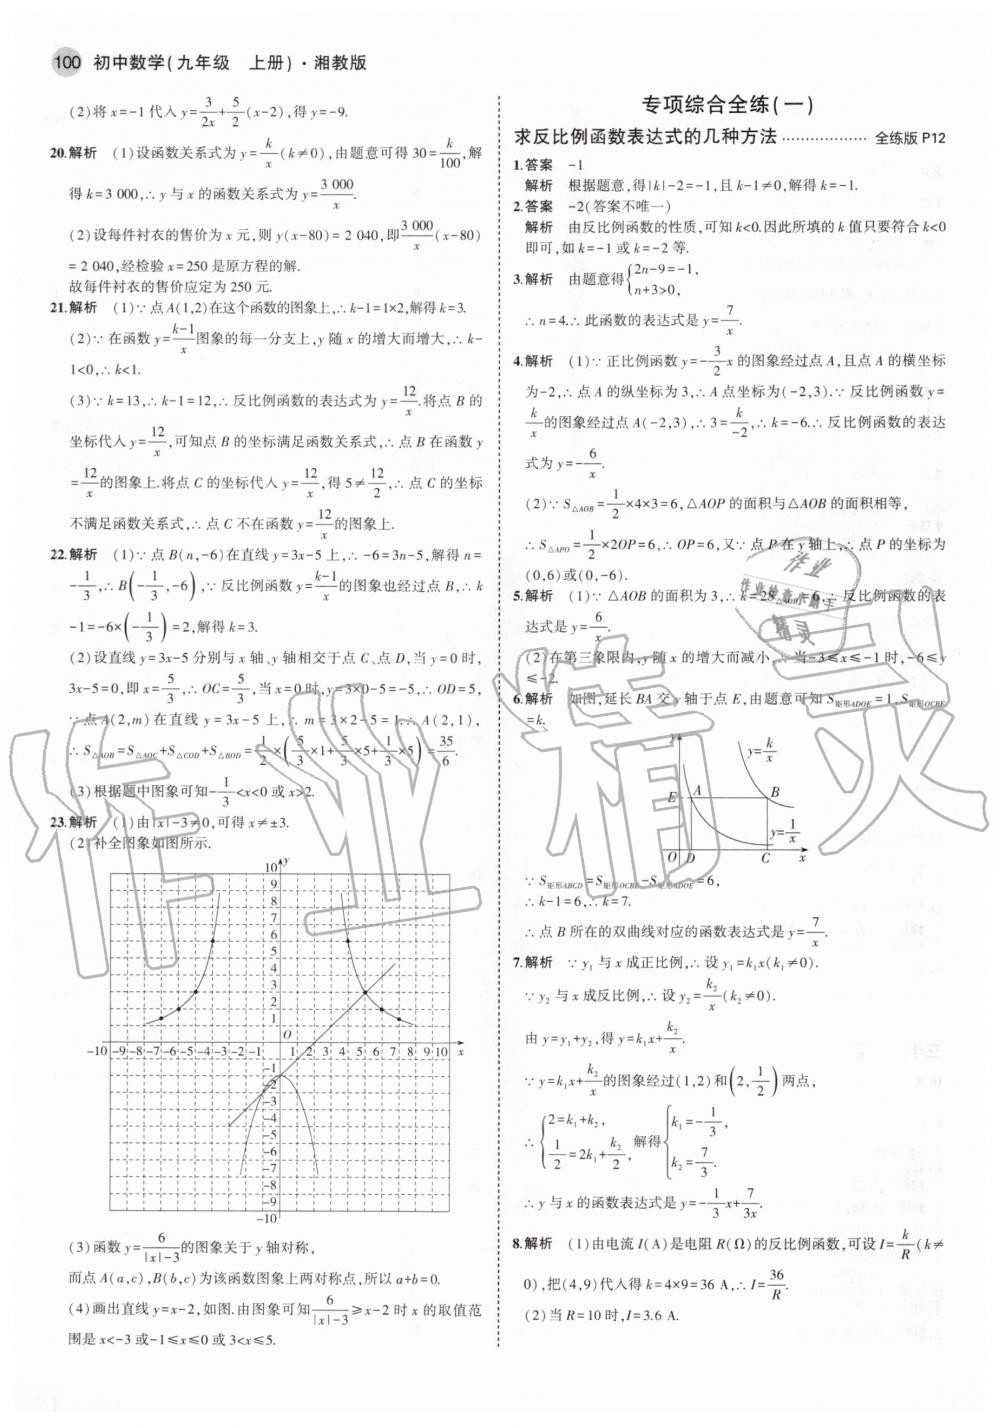 100 初中数学(九年级 上册)·湘教版
(2)将x=-1代入y=3/(2x)+5/2(x-2),得y=-9.
20.解析 (1)设函数关系式为y=k/x(k≠0),由题意可得30=k/100,解
得k=3 000,∴y与x的函数关系式为y=3 000/x.
(2)设每件衬衣的售价为x元,则y(x-80)=2 040,即3 000/x(x-80)
=2 040,经检验x=250是原方程的解.
故每件衬衣的售价应定为250元.
21.解析 (1)∵点A(1,2)在这个函数的图象上,∴k-1=1×2,解得k=3.
(2)∵在函数y=(k-1)/x图象的每一分支上,y随x的增大而增大,∴k-
1<0,∴k<1.
(3)∵k=13,∴k-1=12,∴反比例函数的表达式为y=12/x.将点B的
坐标代入y=12/x,可知点B的坐标满足函数关系式,∴点B在函数y
=12/x的图象上.将点C的坐标代入y=12/x,得5≠12/2,∴点C的坐标
不满足函数关系式,∴点C不在函数y=12/x的图象上.
22.解析 (1)∵点B(n,-6)在直线y=3x-5上,∴-6=3n-5,解得n=
-1/3,∴B(-1/3,-6),∵反比例函数y=(k-1)/x的图象也经过点B,∴k
-1=-6×(-1/3)=2,解得k=3.
(2)设直线y=3x-5分别与x轴、y轴相交于点C、点D,当y=0时,
3x-5=0,即x=5/3,∴OC=5/3,当x=0时,y=3×0-5=-5,∴OD=5,
∵点A(2,m)在直线y=3x-5上,∴m=3×2-5=1,∴A(2,1),
∴S△AOB=S△AOC+S△COD+S△BOD=1/2×(5/3×1+5/3×5+1/3×5)=35/6.
(3)根据题中图象可知-1/3<x<0或x>2.
23.解析 (1)由|x|-3≠0,可得x≠±3.
(2)补全图象如图所示.
10 y
9
8
7
6
5
4
3
2
1
O
-10 -9 -8 -7 -6 -5 -4 -3 -2 -1 1 2 3 4 5 6 7 8 9 10 x
-1
-2
-3
-4
-5
-6
-7
-8
-9
-10
(3)函数y=6/(|x|-3)的图象关于y轴对称,
而点A(a,c),B(b,c)为该函数图象上两对称点,所以a+b=0.
(4)画出直线y=x-2,如图.由图象可知6/(|x|-3)≥x-2时x的取值范
围是x<-3或-1≤x≤0或3<x≤5.
专项综合全练(一)
求反比例函数表达式的几种方法 ………………… 全练版P12
1.答案 -1
解析 根据题意,得|k|-2=-1,且k-1≠0,解得k=-1.
2.答案 -2(答案不唯一)
解析 由反比例函数的性质,可知k<0.因此所填的k值只要符合k<0
即可,如k=-1或k=-2等.
3.解析 由题意得{2n-9=-1, n+3>0,
∴n=4.∴此函数的表达式是y=7/x.
4.解析 (1)∵正比例函数y=-3/2x的图象经过点A,且点A的横坐标
为-2,∴点A的纵坐标为3,∴A点坐标为(-2,3).∵反比例函数y=
k/x的图象经过点A(-2,3),∴3=k/-2,∴k=-6.∴反比例函数的表达
式为y=-6/x.
(2)∵S△AOB=1/2×4×3=6,△AOP的面积与△AOB的面积相等,
∴S△APO=1/2×2OP=6,∴OP=6,又∵点P在y轴上,∴点P的坐标为
(0,6)或(0,-6).
5.解析 (1)∵△AOB的面积为3,∴k=2S△AOB=6,∴反比例函数的表
达式是y=6/x.
(2)在第三象限内,y随x的增大而减小,∴当-3≤x≤-1时,-6≤y
≤-2.
6.解析 如图,延长BA交y轴于点E,由题意可知S矩形ADOE=1,S矩形OCBE
=k.
y
y=k/x
E A B
y=1/x
O D C x
∵S矩形ABCD=S矩形OCBE-S矩形ADOE=6,
∴k-1=6,∴k=7.
∴点B所在的双曲线对应的函数表达式是y=7/x.
7.解析 ∵y₁与x成正比例,∴设y₁=k₁x(k₁≠0).
∵y₂与x成反比例,∴设y₂=k₂/x(k₂≠0).
由y=y₁+y₂,得y=k₁x+k₂/x.
∵y=k₁x+k₂/x的图象经过(1,2)和(2,1/2)两点,
∴{2=k₁+k₂, 1/2=2k₁+k₂/2, 解得{k₁=-1/3, k₂=7/3.
∴y与x的函数表达式是y=-1/3x+7/(3x).
8.解析 (1)由电流I(A)是电阻R(Ω)的反比例函数,可设I=k/R(k≠
0),把(4,9)代入得k=4×9=36 A,∴I=36/R.
(2)当R=10时,I=3.6 A.
作业精灵